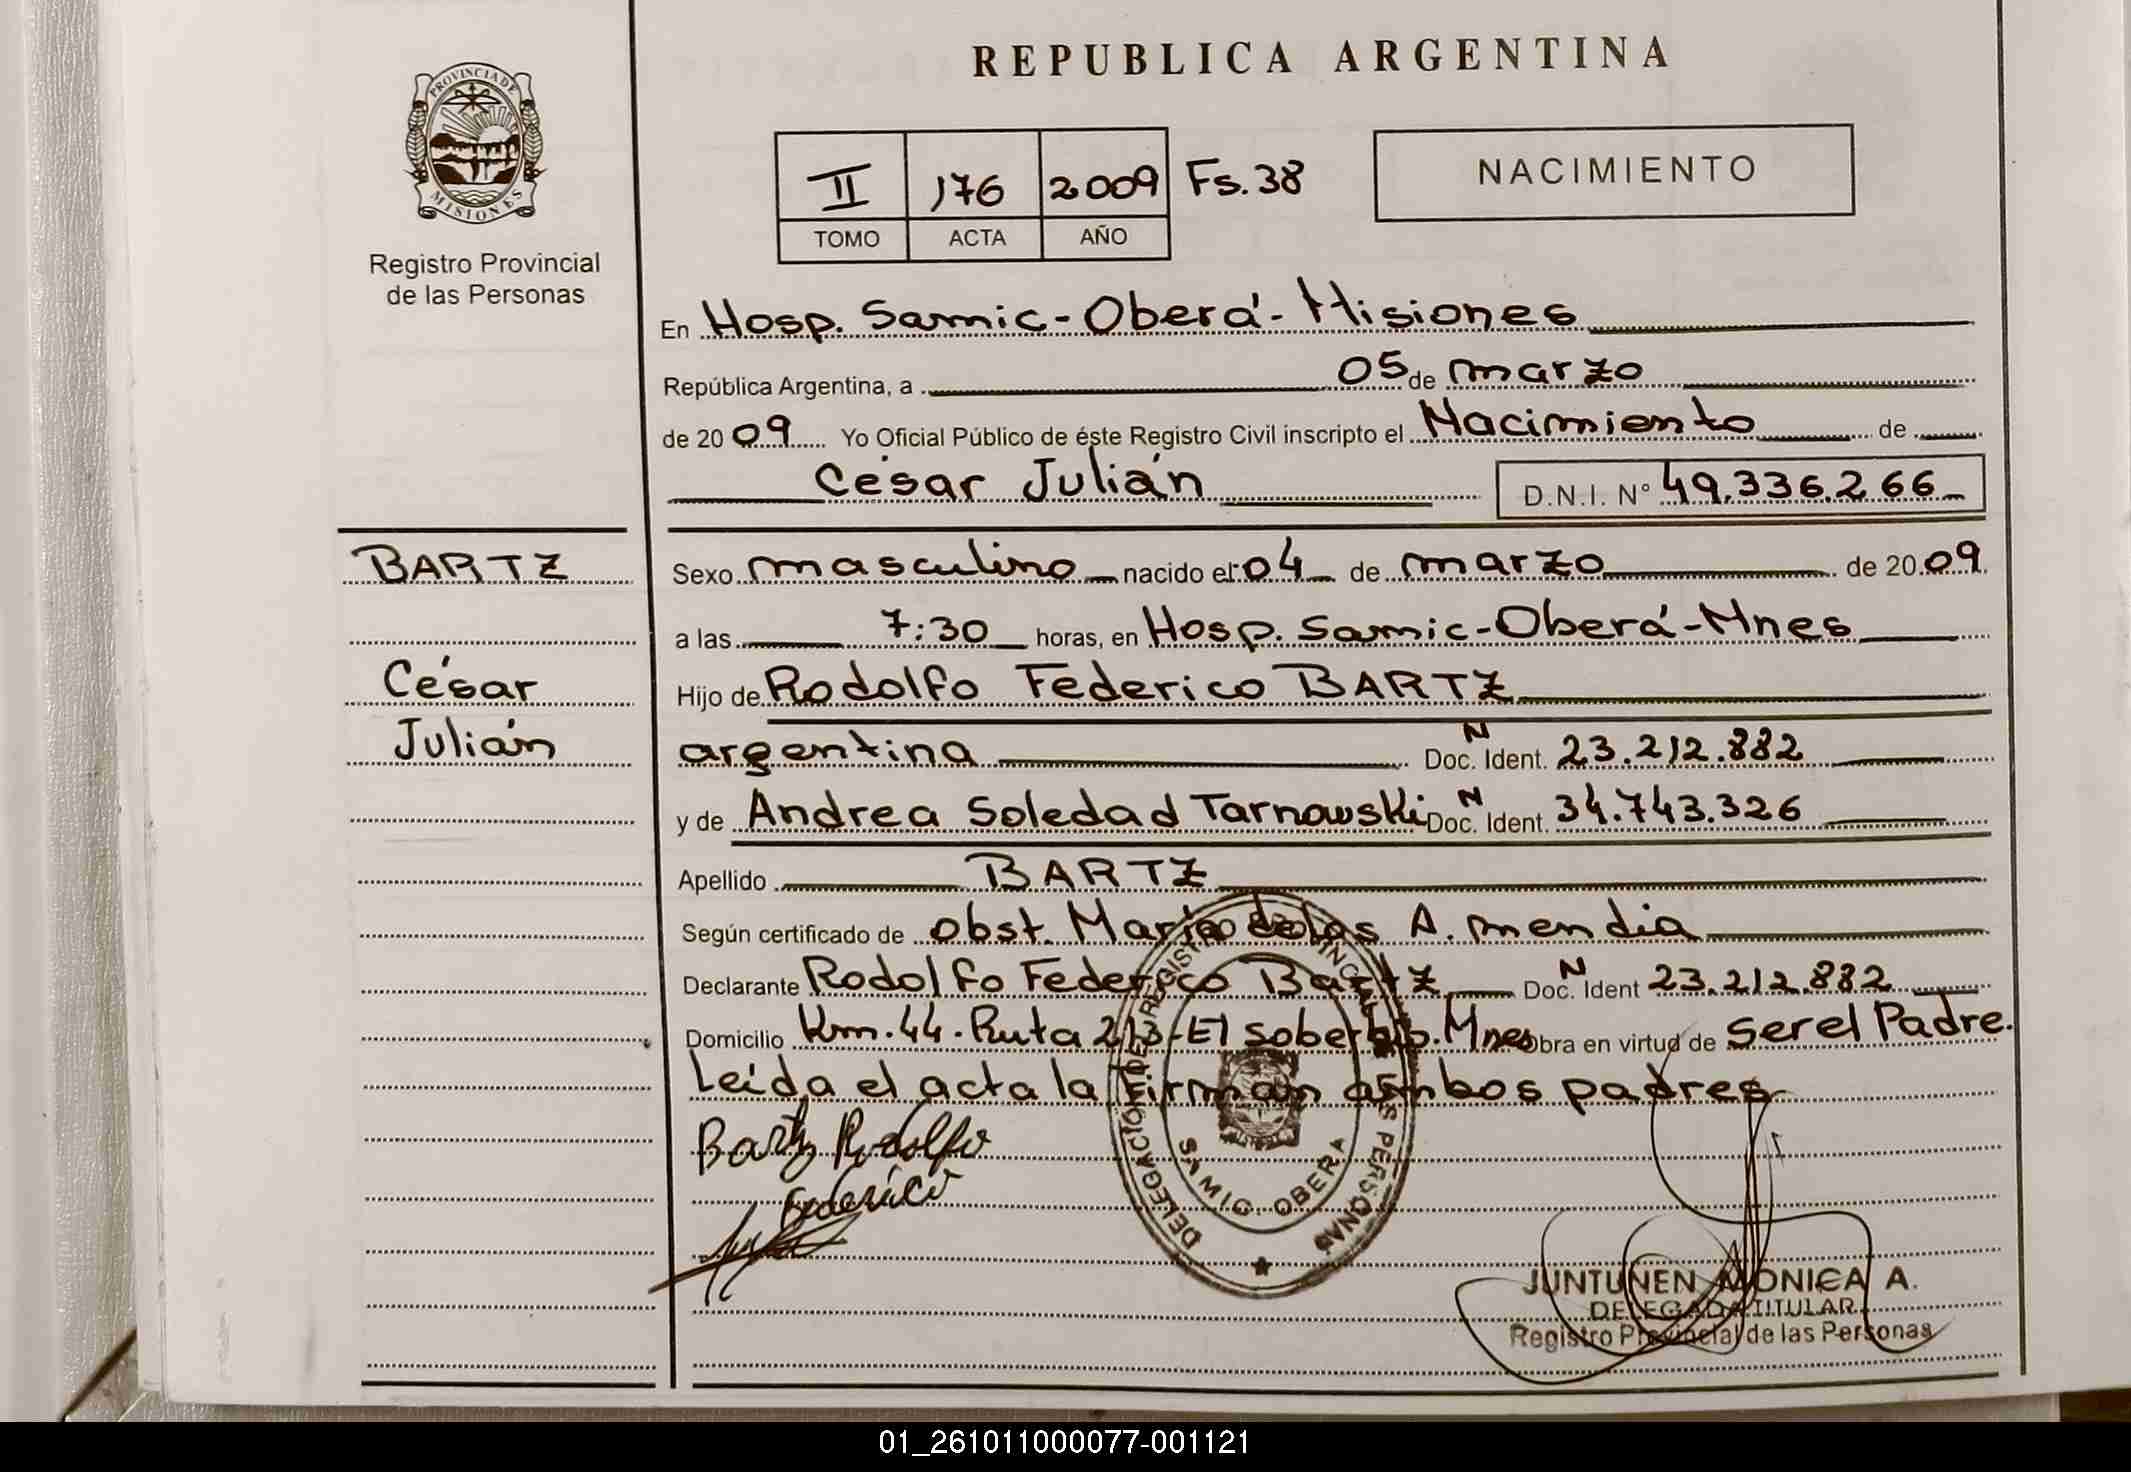 REPUBLICA ARGENTINA
PROVINCIA DE
MISIONES
Registro Provincial
de las Personas
II 176 2009 Fs. 38
TOMO ACTA AÑO
NACIMIENTO
En Hosp. Samic - Oberá - Misiones
República Argentina, a 05 de marzo
de 2009 Yo Oficial Público de éste Registro Civil inscripto el Nacimiento de
César Julián D.N.I. N° 49.336.266
BARTZ
César
Julián
Sexo masculino nacido el 04 de marzo de 2009
a las 7:30 horas, en Hosp. Samic - Oberá - Mnes
Hijo de Rodolfo Federico BARTZ
argentina Doc. N Ident. 23.212.882
y de Andrea Soledad Tarnowski Doc. N Ident. 34.743.326
Apellido BARTZ
Según certificado de obst. María de los A. mendia
Declarante Rodolfo Federico Bartz Doc. N Ident 23.212.882
Domicilio Km. 44. Ruta 213 - El soberbio. Mnes Obra en virtud de ser el Padre.
Leída el acta la Firman ambos padres
Bartz Rodolfo
Federico
DELEGACIÓN DEL REGISTRO PROVINCIAL DE LAS PERSONAS
SAMIC OBERA
JUNTUNEN MONICA A.
DELEGADA TITULAR
Registro Provincial de las Personas
01_261011000077-001121